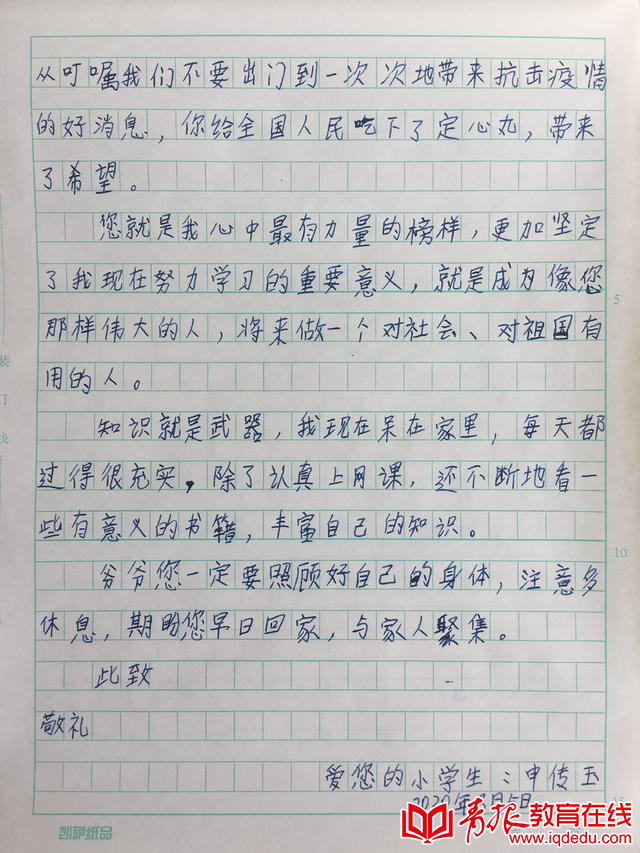 从叮嘱我们不要出门到一次次地带来抗击疫情
的好消息，你给全国人民吃下了定心丸，带来
了希望。
您就是我心中最有力量的榜样，更加坚定
了我现在努力学习的重要意义，就是成为像您
5
那样伟大的人，将来做一个对社会、对祖国有
用的人。
知识就是武器，我现在呆在家里，每天都
过得很充实，除了认真上网课，还不断地看一
些有意义的书籍，丰富自己的知识。
10
爷爷您一定要照顾好自己的身体，注意多
休息，期盼您早日回家，与家人聚集。
此致
敬礼
爱您的小学生：申传玉
2020年 月5日
装
订
线
凯萨纸品
青报教育在线
www.iqdedu.com